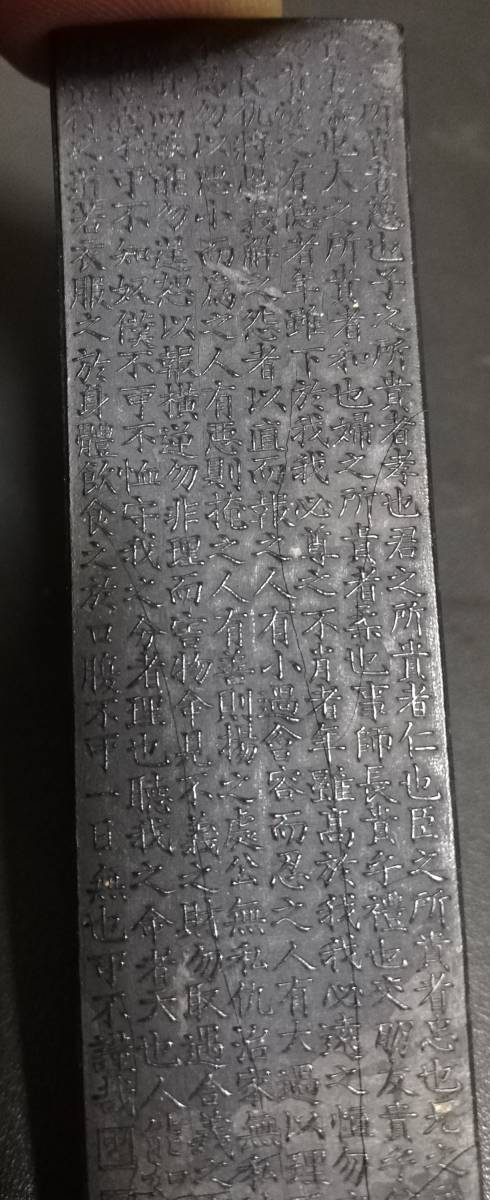 所貴者慈也子之所貴者孝也君之所貴者仁也臣之所貴者忠也兄之
貴者恭也夫之所貴者和也婦之所貴者柔也事師長貴乎禮也交朋友貴乎
之有德者年雖下於我我必尊之不肖者年雖高於我我必遠之慎勿
之長仇將恩義解之怨者以直而報之人有小過含容而忍之人有大過以理
為勿以惡小而為之人有惡則掩之人有善則揚之處公無私仇治家無私
而嫉能勿逞怒以報橫逆勿非理而害物命見不義之財勿取遇合義之
可不知奴僕不可不恤守我之分者理也聽我之命者天也人能如
若衣服之於身體飲食之於口腹不可一日無也可不謹哉